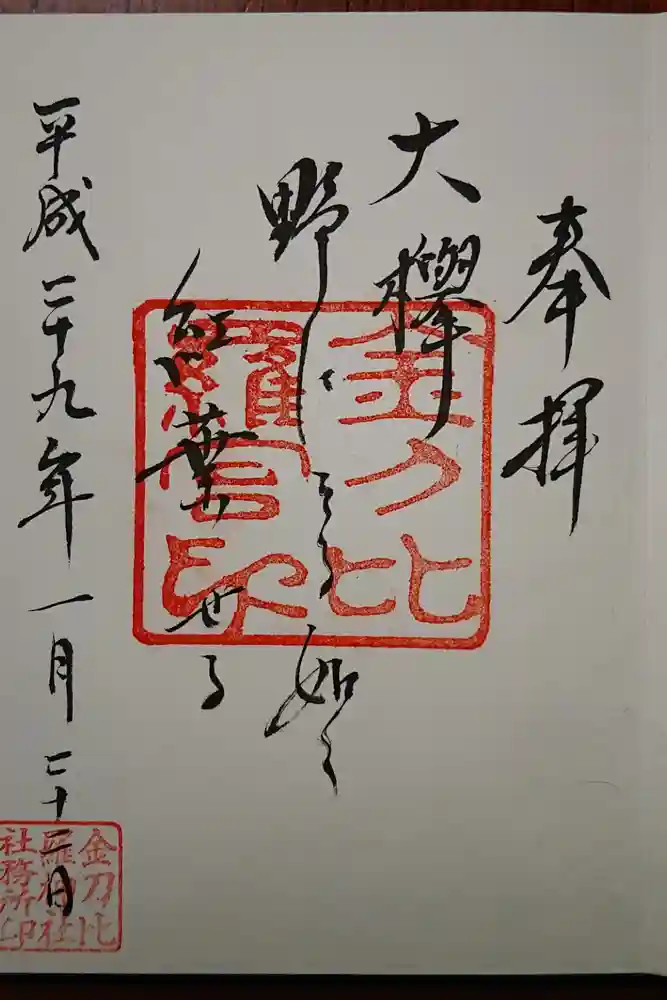 奉拝
大欅
野し 如く
紅葉せる
平成二十九年一月二十二日
金刀比
羅宮印
金刀比
羅神社
社務所印